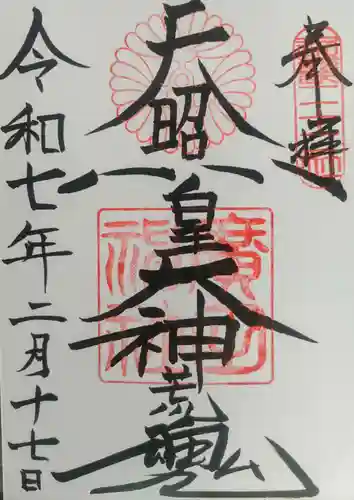 奉拝
天照皇大神荒魂
令和七年二月十七日